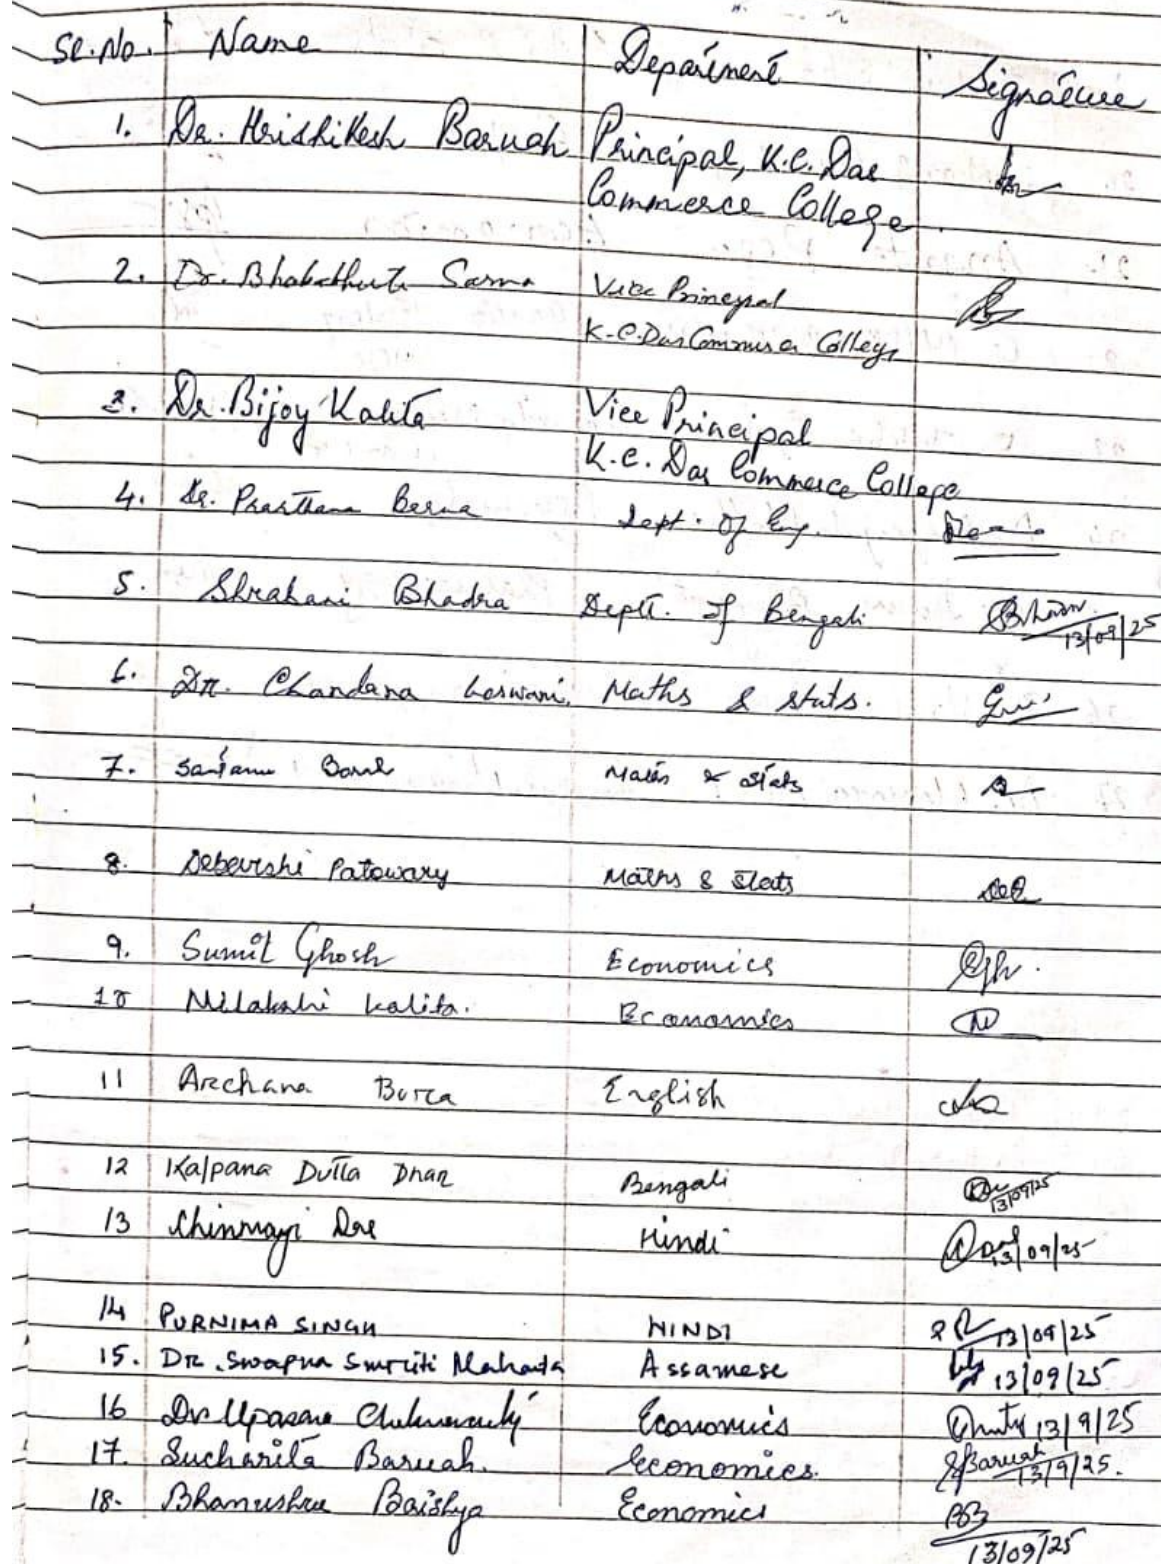 Sl. No. Name Department Signature
1. Dr. Hrishikesh Baruah Principal, K.C. Das
Commerce College.
2. Dr. Bhababhuti Sarma Vice Principal
K.C. Das Commerce College
3. Dr. Bijoy Kalita Vice Principal
K.C. Das Commerce College
4. Dr. Prarthana Barua Dept. of Eng.
5. Shrabani Bhadra Deptt. of Bengali
13/09/25
6. Dr. Chandana Goswami. Maths & stats.
7. Santanu Maths & Stats
8. Debarshi Patowary Maths & Stats
9. Sumit Ghosh Economics
10 Nilakshi Kalita. Economics
11 Archana Bora English
12 Kalpana Dutta Dhar Bengali
13/09/25
13 Chinmayi Das Hindi 13/09/25
14 PURNIMA SINGH HINDI 13/09/25
15. DR. Swapna Smriti Mahanta Assamese 13/09/25
16 Dr. Upasana Chakravarty Economics 13/9/25
17. Sucharita Baruah. Economics. SBaruah
13/9/25.
18. Bhanushree Baishya Economics BB
13/09/25